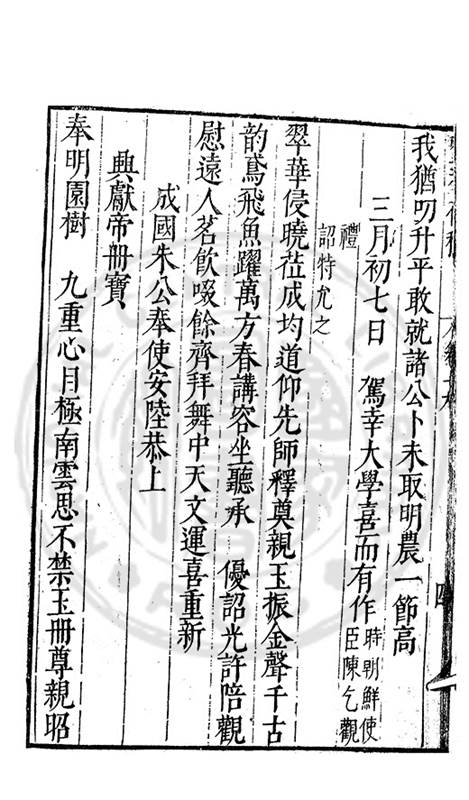 我猶叨升平敢就諸公卜未取明農一節高
三月初七日　駕幸大學喜而有作時朝鮮使臣陳乞觀
禮
詔特允之
翠華侵曉蒞成均道仰先師釋奠親玉振金聲千古
韵鳶飛魚躍萬方春講容坐聽承　優詔光許陪觀
慰遠人茗飲啜餘齊拜舞中天文運喜重新
成國朱公奉使安陸恭上
興獻帝冊寶
奉明園樹　九重心目極南雲思不禁玉冊尊親昭